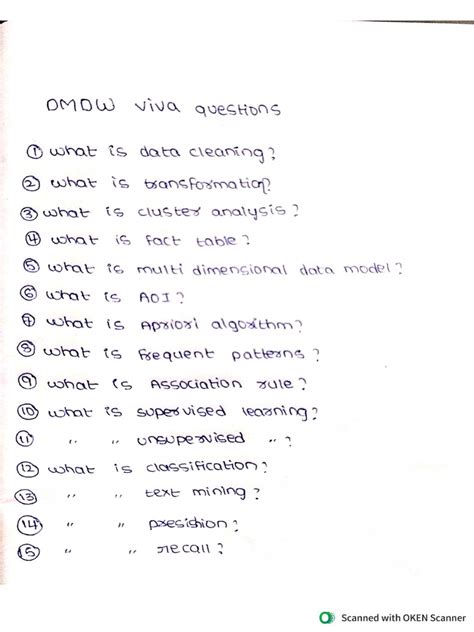 DMDW viva questions
① what is data cleaning?
② what is transformation?
③ what is cluster analysis?
④ what is fact table?
⑤ what is multi dimensional data model?
⑥ what is AOI?
⑦ what is Apriori algorithm?
⑧ what is Frequent patterns?
⑨ what is Association rule?
⑩ what is supervised learning?
⑪ " " unsupervised " ?
⑫ what is classification?
⑬ " " text mining?
⑭ " " presishion?
⑮ " " recall?
Scanned with OKEN Scanner